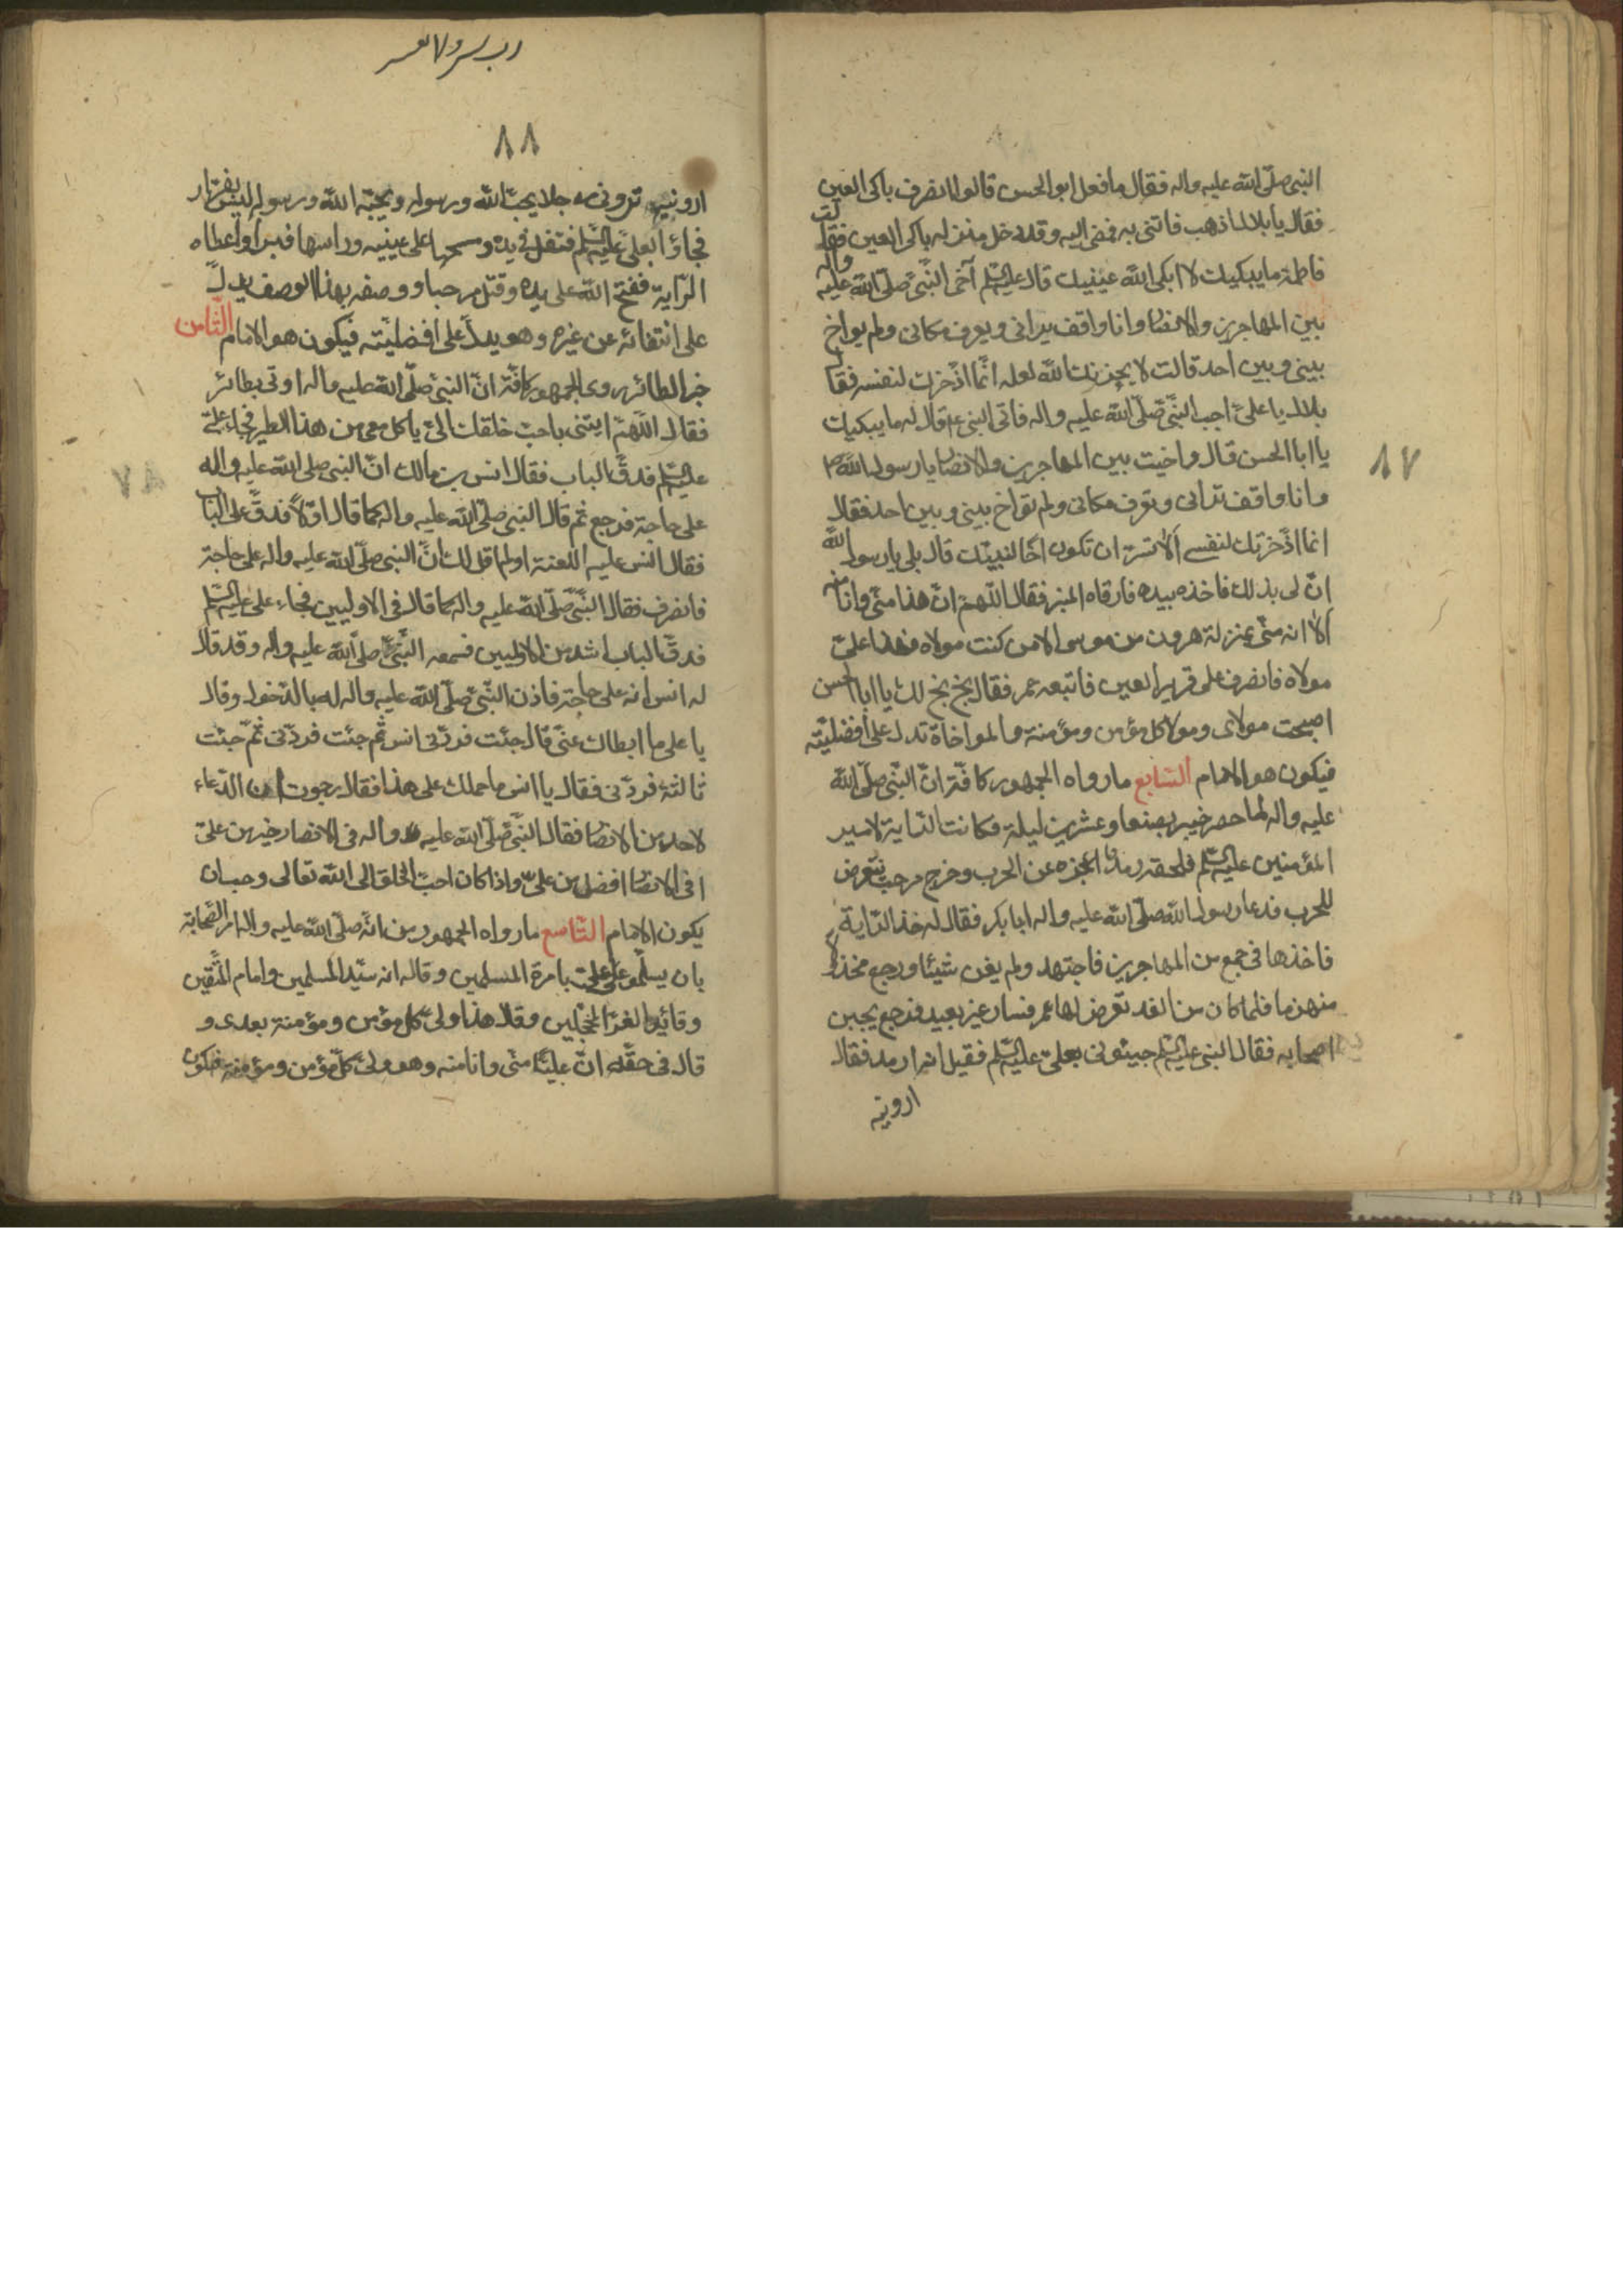 النبي صلّى الله عليه واله فقال ما فعل ابو الحسن قالوا انصرف باكى العين
فقال يا بلال اذهب فاتنى به فمضى اليه وقد دخل منزله باكى العين فقالت
فاطمة ما يبكيك لا ابكى الله عينيك قال عليه السلم آخى النّبيّ صلّى الله عليه واله
بين المهاجرين والانصار وانا واقف يرانى ويعرف مكانى ولم يواخ
بينى وبين احد قالت لا يحزنك الله لعله انّما ادّخرك لنفسه فقال
بلال يا علىّ اجب النّبيّ صلّى الله عليه واله فاتى النبي ع قال له ما يبكيك
يا ابا الحسن قال واخيت بين المهاجرين والانصار يا رسول الله ص
وانا واقف ترانى وتعرف مكانى ولم تواخ بينى وبين احد فقال
انما ادّخرتك لنفسى ألا تسرّ ان تكون اخا لنبيّك قال بلى يا رسول الله
انّ لى بذلك فاخذه بيده فارقاه المنبر فقال اللّهمّ انّ هذا منّى وانا منه
ألا انه منّى بمنزلة هرون من موسى الا من كنت مولاه فهذا علىّ
مولاه فانصرف على قرير العين فاتبعه عمر فقال بخ بخ لك يا ابا الحسن
اصبحت مولاى ومولا كل مؤمن ومؤمنة والمواخاة تدل على افضليّته
فيكون هو الامام السّابع ما رواه الجمهور كافّة انّ النّبي صلّى الله
عليه واله لما حصر خيبر بضعا وعشرين ليلة وكانت الرّاية لامير
المؤمنين عليه السلم فلحقه رمد اعجزه عن الحرب وخرج مرحب يتعرض
للحرب فدعا رسول الله صلّى الله عليه واله ابا بكر فقال له خذ الرّاية
فاخذها فى جمع من المهاجرين فاجتهد ولم يغن شيئا ورجع مخذولا
منهزما فلما كان من الغد تعرض لها عمر فسار غير بعيد فرجع يجبن
اصحابه فقال النبى عليه السلم جيئونى بعلىّ عليه السلم فقيل انه ارمد فقال
ارونيه
٨٧
٨٨
ارونيه ترونى رجلا يحبّ الله ورسوله ويحبّه الله ورسوله ليس بفرّار
فجاؤا بعلىّ عليه السلم فتفل فى يده ومسحها على عينيه وراسها فبرا واعطاه
الرّاية ففتح الله على يده وقتل مرحبا ووصفه بهذا الوصف يدلّ
على انتفائه عن غيره وهو يدلّ على افضليّته فيكون هو الامام الثّامن
خبر الطائر روى الجمهور كافّة انّ النبىّ صلّى الله عليه واله اوتى بطائر
فقال اللّهمّ ايتنى باحبّ خلقك الىّ ياكل معى من هذا الطير فجاء علىّ
عليه السلم فدقّ الباب فقال انس بن مالك انّ النبى صلى الله عليه واله
على حاجة فرجع ثم قال النبى صلّى الله عليه واله كما قال اوّلا فدقّ على الباب
فقال انس عليه اللعنة اولم اقل لك انّ النبى صلّى الله عليه واله على حاجة
فانصرف فقال النّبىّ صلّى الله عليه واله كما قال فى الاوليين فجاء على عليه السلم
فدقّ الباب اشد من الاوليين فسمعه النّبىّ صلّى الله عليه واله وقد قال
له انس انه على حاجة فاذن النّبىّ صلّى الله عليه واله له بالدّخول وقال
يا على ما ابطاك عنّى قال جئت فردّنى انس ثم جئت فردّنى ثمّ جئت
ثالثة فردّنى فقال يا انس ما حملك على هذا فقال رجوت ان الدّعاء
لاحد من الانصار فقال النّبىّ صلّى الله عليه واله فى الانصار خير من علىّ
افى الانصار افضل من علىّ واذا كان احبّ الخلق الى الله تعالى وجب ان
يكون الامام التّاسع ما رواه الجمهور من انّه صلّى الله عليه واله امر الصّحابة
بان يسلّموا على علىّ بامرة المسلمين وقال انه سيّد المسلمين وامام المتّقين
وقائد الغرّ المحجّلين وقال هذا ولىّ كل مؤمن ومؤمنة بعدى و
قال فى حقّه انّ عليّا منّى وانا منه وهو ولىّ كلّ مؤمن ومؤمنة فيكون
٧٨